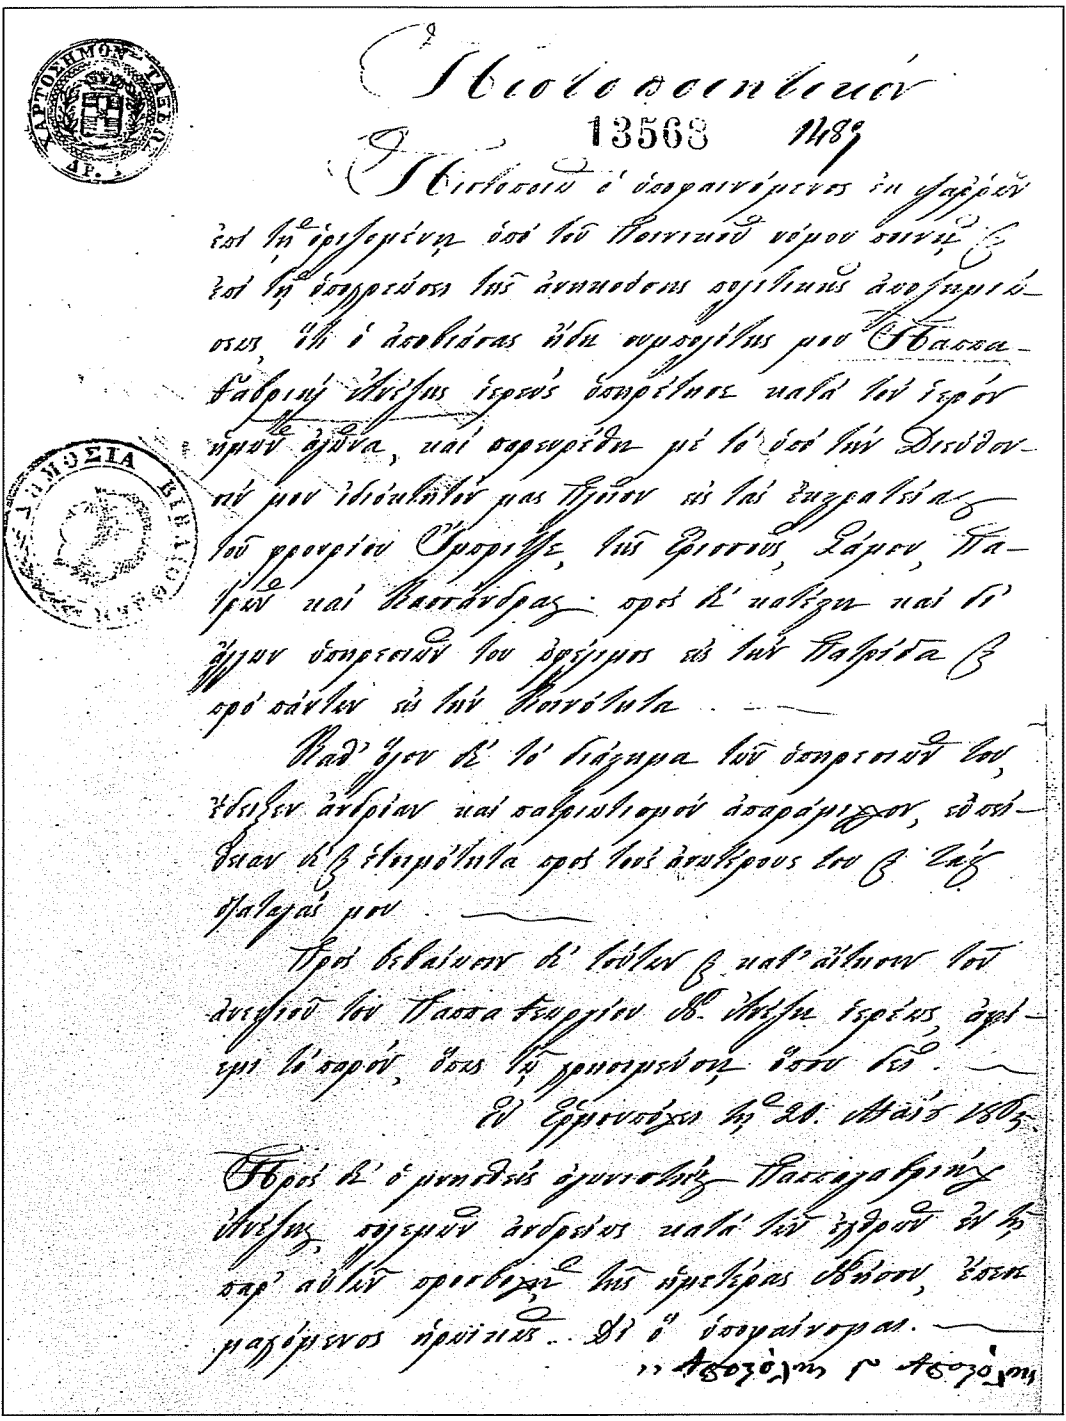 ΧΑΡΤΟΣΗΜΟΝ ΤΑΞΕΩΣ
ΔΡ. 1
Πιστοποιητικόν
13568 1489
Πιστοποιῶ ὁ ὑποφαινόμενος ἐκ Ψαρρῶν
ἐπί τῇ ὁριζομένῃ ὑπό τοῦ Ποινικοῦ νόμου ποινῇ &
ἐπί τῇ ὑποχρεώσει τῆς ἀνηκούσης πολιτικῆς ἀποζημιώ-
σεως, ὅτι ὁ ἀποβιώσας ἤδη συμπολίτης μου Παππα-
Γαβριήλ Ἀνέζης ἱερεύς ὑπηρέτησε κατά τον ἱερόν
ἡμῶν ἀγῶνα, καί παρευρέθη μέ τό ὑπό την Διεύθυν-
σίν μου ἰδιόκτητόν μας Πλοῖον εἰς τάς ἐκστρατείας
τοῦ φρουρίου τῆς Ερισσοῦς, Σάμου, Πα-
τρῶν καί Κασσάνδρας· προς δέ κατέστη καί δι'
ἄλλων ὑπηρεσιῶν του ὠφέλιμος εἰς τήν Πατρίδα &
πρό πάντων εἰς τήν Κοινότητα
Καθ' ὅλον δέ τό διάστημα τῶν ὑπηρεσιῶν του,
ἔδειξεν ἀνδρίαν καί πατριωτισμόν ἀπαράμιλλον, εὐπεί-
θειαν δέ & ἑτοιμότητα προς τούς ἀνωτέρους του & τάς
διαταγάς μου
Προς βεβαίωσιν δέ τούτων & κατ' αἴτησιν τοῦ
ἀνεψιοῦ του Παππα Γεωργίου Ν. Ἀνέζη ἱερέως, ἀφί-
ημι τό παρόν, ὅπως τῷ χρησιμεύσῃ ὅπου δεῖ.
Ἐν Ἑρμουπόλει τῇ 20. Μαΐου 1865.
Προς δέ ὁ μνησθείς ἀγωνιστής Παππαγαβριήλ
Ἀνέζης, πολεμῶν ἀνδρείως κατά τῶν ἐχθρῶν ἐν τῇ
παρ' αὐτῶν προσβολῇ τῆς ἡμετέρας Νήσου, ἔπεσε
μαχόμενος ἡρωϊκῶς. Δι ὅ ὑποφαίνομαι.
Ἀποστόλης Ν Ἀποστόλης
ΔΗΜΟΣΙΑ ΒΙΒΛΙΟΘΗΚΗ